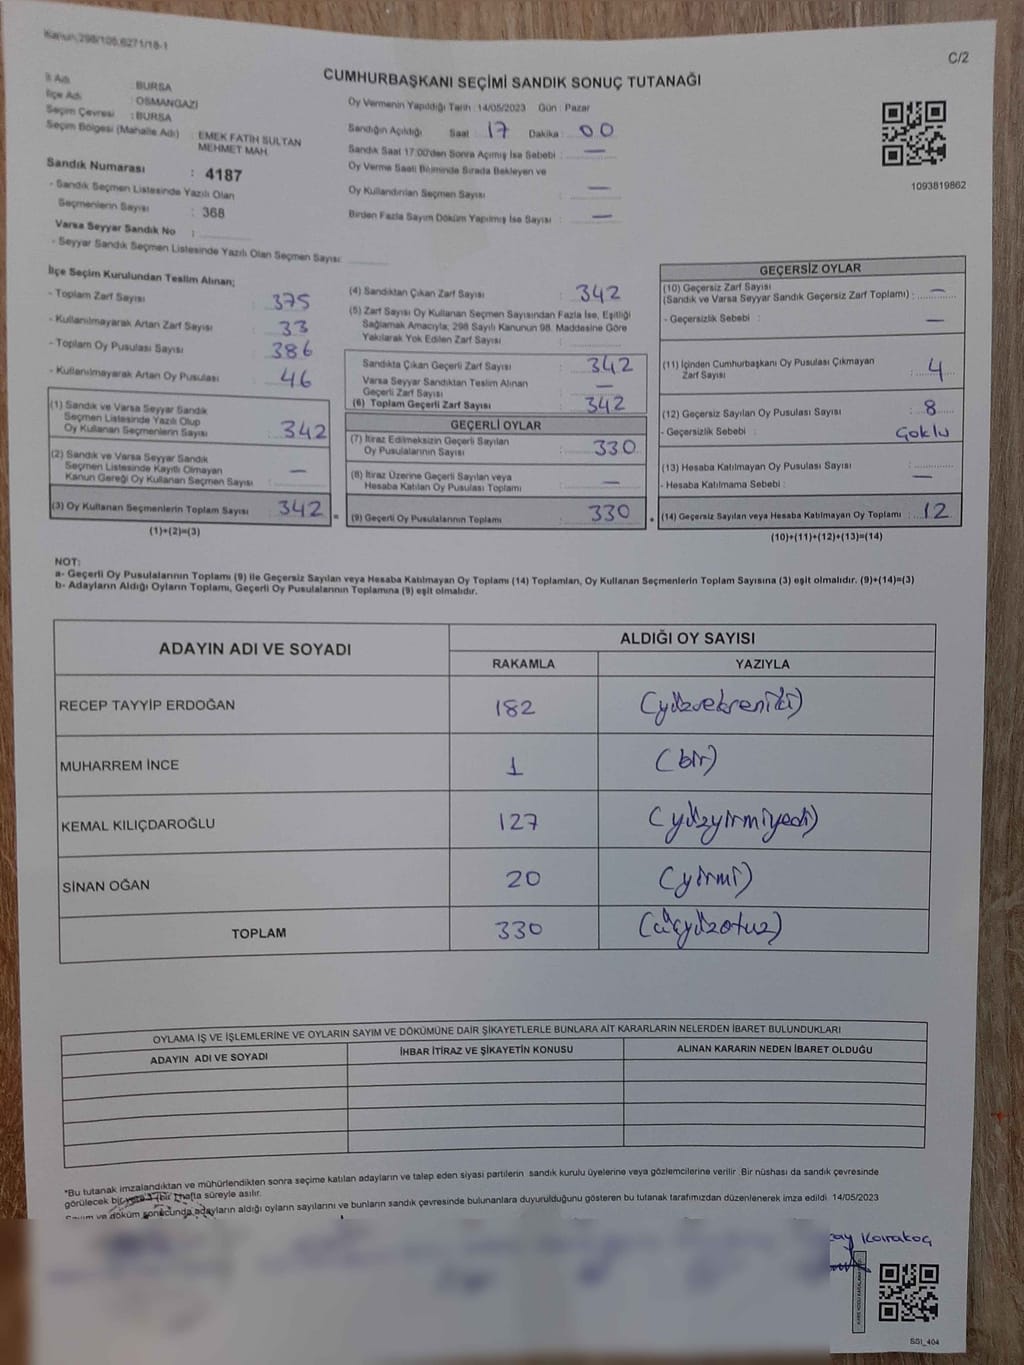 Kanun,298/105,6271/18-1
C/2
CUMHURBAŞKANI SEÇİMİ SANDIK SONUÇ TUTANAĞI
İl Adı : BURSA
İlçe Adı : OSMANGAZİ
Seçim Çevresi : BURSA
Seçim Bölgesi (Mahalle Adı) : EMEK FATİH SULTAN
MEHMET MAH.
Sandık Numarası : 4187
- Sandık Seçmen Listesinde Yazılı Olan
Seçmenlerin Sayısı : 368
Varsa Seyyar Sandık No :
- Seyyar Sandık Seçmen Listesinde Yazılı Olan Seçmen Sayısı:
Oy Vermenin Yapıldığı Tarih : 14/05/2023 Gün : Pazar
Sandığın Açıldığı Saat : 17 Dakika : 00
Sandık Saat 17:00'den Sonra Açılmış İse Sebebi : —
Oy Verme Saati Bitiminde Sırada Bekleyen ve
Oy Kullandırılan Seçmen Sayısı : —
Birden Fazla Sayım Döküm Yapılmış İse Sayısı : —
1093819862
İlçe Seçim Kurulundan Teslim Alınan;
- Toplam Zarf Sayısı : 375
- Kullanılmayarak Artan Zarf Sayısı : 33
- Toplam Oy Pusulası Sayısı : 386
- Kullanılmayarak Artan Oy Pusulası : 46
(1) Sandık ve Varsa Seyyar Sandık
Seçmen Listesinde Yazılı Olup
Oy Kullanan Seçmenlerin Sayısı : 342
(2) Sandık ve Varsa Seyyar Sandık
Seçmen Listesinde Kayıtlı Olmayan
Kanun Gereği Oy Kullanan Seçmen Sayısı : —
(3) Oy Kullanan Seçmenlerin Toplam Sayısı : 342
(1)+(2)=(3)
(4) Sandıktan Çıkan Zarf Sayısı : 342
(5) Zarf Sayısı Oy Kullanan Seçmen Sayısından Fazla İse, Eşitliği
Sağlamak Amacıyla; 298 Sayılı Kanunun 98. Maddesine Göre
Yakılarak Yok Edilen Zarf Sayısı :
Sandıkta Çıkan Geçerli Zarf Sayısı : 342
Varsa Seyyar Sandıktan Teslim Alınan
Geçerli Zarf Sayısı : —
(6) Toplam Geçerli Zarf Sayısı : 342
GEÇERLİ OYLAR
(7) İtiraz Edilmeksizin Geçerli Sayılan
Oy Pusulalarının Sayısı : 330
(8) İtiraz Üzerine Geçerli Sayılan veya
Hesaba Katılan Oy Pusulası Toplamı : —
= (9) Geçerli Oy Pusulalarının Toplamı : 330 +
GEÇERSİZ OYLAR
(10) Geçersiz Zarf Sayısı
(Sandık ve Varsa Seyyar Sandık Geçersiz Zarf Toplamı) : —
- Geçersizlik Sebebi : —
(11) İçinden Cumhurbaşkanı Oy Pusulası Çıkmayan
Zarf Sayısı : 4
(12) Geçersiz Sayılan Oy Pusulası Sayısı : 8
- Geçersizlik Sebebi : Çoklu
(13) Hesaba Katılmayan Oy Pusulası Sayısı :
- Hesaba Katılmama Sebebi : —
(14) Geçersiz Sayılan veya Hesaba Katılmayan Oy Toplamı : 12
(10)+(11)+(12)+(13)=(14)
NOT:
a- Geçerli Oy Pusulalarının Toplamı (9) ile Geçersiz Sayılan veya Hesaba Katılmayan Oy Toplamı (14) Toplamları, Oy Kullanan Seçmenlerin Toplam Sayısına (3) eşit olmalıdır. (9)+(14)=(3)
b- Adayların Aldığı Oyların Toplamı, Geçerli Oy Pusulalarının Toplamına (9) eşit olmalıdır.
ADAYIN ADI VE SOYADI
ALDIĞI OY SAYISI
RAKAMLA YAZIYLA
RECEP TAYYİP ERDOĞAN 182 (yüzsekseniki)
MUHARREM İNCE 1 (bir)
KEMAL KILIÇDAROĞLU 127 (yüzyirmiyedi)
SİNAN OĞAN 20 (yirmi)
TOPLAM 330 (üçyüzotuz)
OYLAMA İŞ VE İŞLEMLERİNE VE OYLARIN SAYIM VE DÖKÜMÜNE DAİR ŞİKAYETLERLE BUNLARA AİT KARARLARIN NELERDEN İBARET BULUNDUKLARI
ADAYIN ADI VE SOYADI İHBAR İTİRAZ VE ŞİKAYETİN KONUSU ALINAN KARARIN NEDEN İBARET OLDUĞU
*Bu tutanak imzalandıktan ve mühürlendikten sonra seçime katılan adayların ve talep eden siyasi partilerin sandık kurulu üyelerine veya gözlemcilerine verilir. Bir nüshası da sandık çevresinde
görülecek bir yere 1 (bir) hafta süreyle asılır.
Sayım ve döküm sonucunda adayların aldığı oyların sayılarını ve bunların sandık çevresinde bulunanlara duyurulduğunu gösteren bu tutanak tarafımızdan düzenlenerek imza edildi. 14/05/2023
Karakoç
SSI_404